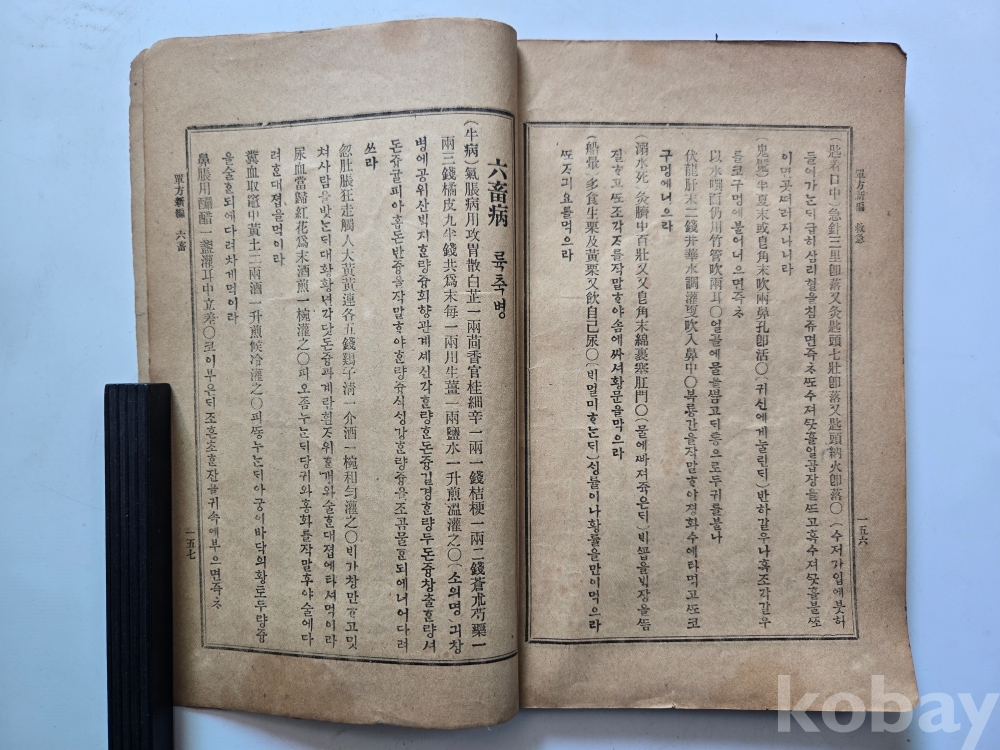 單方新編 救急
一五六
(匙着口中)急針三里卽落又灸匙頭七壯卽落又匙頭納火卽落○(수저가입에붓허
들어가는ᄃᆡ급히삼리혈을침쥬면즉ᄎᆞ
이면곳ᄯᅥ러지나니라
鬼魘半夏末或皂角末吹兩鼻孔卽活○(귀신에게눌린ᄃᆡ)반하갈우나혹조각갈우
를코구멍에불어너으면즉ᄎᆞ
以水噀面仍用竹管吹兩耳○얼골에물을ᄲᅮᆷ고ᄃᆡ롱으로두귀를불나
伏龍肝末二錢井華水調灌更吹入鼻中○복룡간을작말ᄒᆞ야졍화수에타먹고ᄯᅩ코
구멍에너으라
(溺水死)灸臍中百壯又皂角末綿裹塞肛門○(물에ᄲᅡ져죽은ᄃᆡ)ᄇᆡᄭᅩᆸ을ᄇᆡᆨ장을ᄯᅳᆷ
질ᄒᆞ고ᄯᅩ조각ᄌᆞ를작말ᄒᆞ야솜에싸셔황문을막으라
(船暈)多食生栗及黃栗又飮自己尿○(ᄇᆡ멀미ᄒᆞ는ᄃᆡ)싱률이나황률을만이먹으라
ᄯᅩᄌᆞ긔요를먹으라
六畜病 륙축병
(牛病)氣脹病用攻胃散白芷一兩茴香官桂細辛一兩一錢桔梗一兩二錢蒼朮芍藥一
兩三錢橘皮九半錢共爲末每一兩用生薑一兩鹽水一升煎溫灌之○(소의병)긔창
병에공위산ᄇᆡᆨ지ᄒᆞᆫ량즁회향관계셰신각ᄒᆞᆫ량ᄒᆞᆫ돈즁길경ᄒᆞᆫ량두돈즁창츌ᄒᆞᆫ량셔
돈즁귤피아홉돈반즁을작말ᄒᆞ야ᄒᆞᆫ량즁식싱강ᄒᆞᆫ량즁을조곰물ᄒᆞᆫ되에너어다려
쓰라
忽肚脹狂走觸人大黃黃連各五錢鷄子淸一介酒一椀和勻灌之○ᄇᆡ가창만ᄒᆞ고밋
쳐사람을밧는ᄃᆡ대황황년각닷돈즁과계란흰ᄌᆞ위ᄒᆞᆫ개와술ᄒᆞᆫ대졉에타셔먹이라
尿血當歸紅花爲末酒煎一椀灌之○피오좀누는ᄃᆡ당귀와홍화를작말후야술에다
려ᄒᆞᆫ대졉을먹이라
糞血取竈中黃土二兩酒一升煎候冷灌之○피ᄯᅩᆼ누는ᄃᆡ아궁이바닥의황토두량즁
을술ᄒᆞᆫ되에다려차게먹이라
鼻脹用釅醋一盞灌耳中立差○코이부은ᄃᆡ조흔초ᄒᆞᆫ잔을귀속에부으면즉ᄎᆞ
單方新編 六畜
一五七
kobay